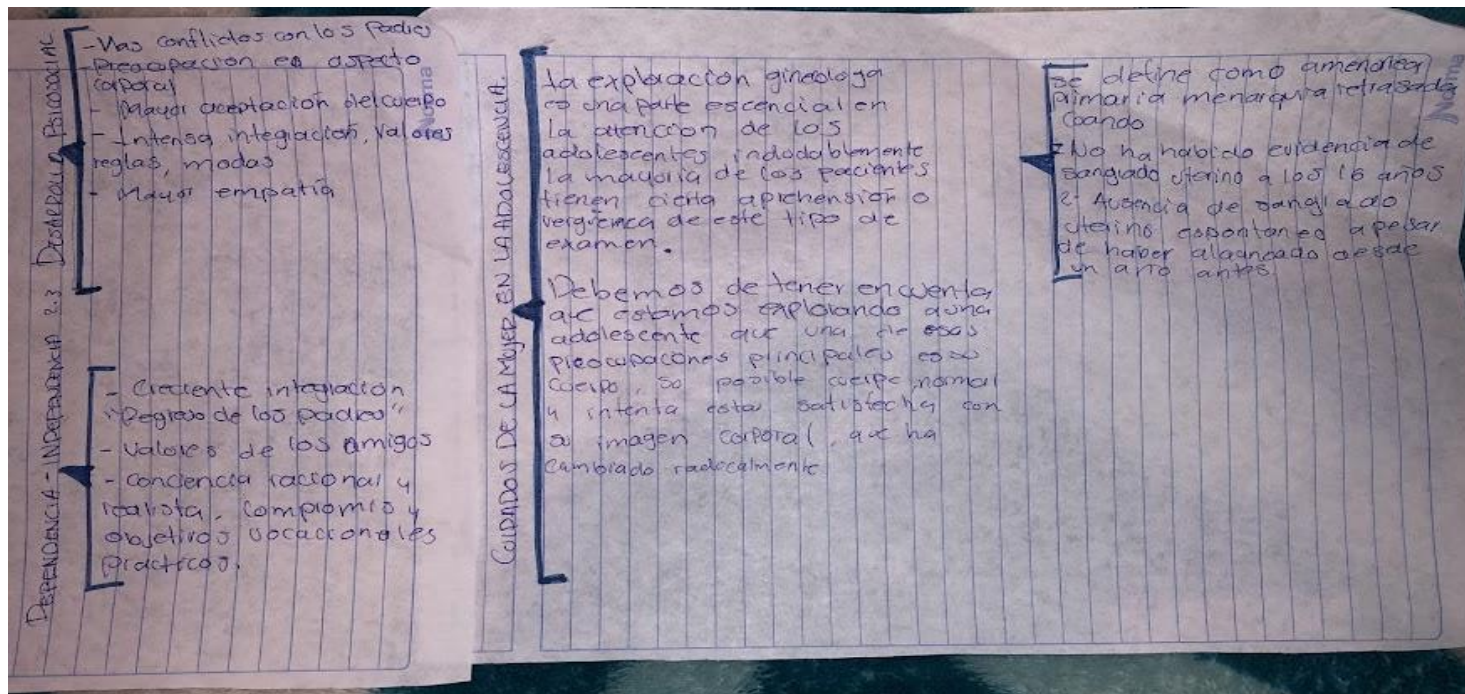 DESARROLLO PSICOSOCIAL
- Mas conflictos con los Padres
- Preocupacion en aspecto
corporal
- Mayor aceptación del cuerpo
- Intensa integración, valores
reglas, modas
- Mayor empatía
DEPENDENCIA - INDEPENDENCIA 2.3
- Creciente integración
"Regreso de los padres"
- Valores de los amigos
- conciencia racional y
realista, compromiso y
objetivos vocacionales
practicos.
CUIDADOS DE LA MUJER EN LA ADOLESCENCIA.
La exploracion ginecologa
es una parte escencial en
la atencion de los
adolescentes indudablemente
la mayoria de los pacientes
tienen cierta aprehensión o
verguenza de este tipo de
examen.
Debemos de tener encuenta
que estamos explorando a una
adolescente que una de esas
preocupacones principales es su
cuerpo, su posible cuerpo normal
y intenta estar satisfecha con
su imagen corporal, que ha
cambiado radicalmente
Se define como amenorrea
primaria menarquia retrasada
cuando
No ha habido evidencia de
sangrado uterino a los 16 años
2- Ausencia de sangrado
uterino espontaneo apesar
de haber desde
un año antes
Norma
Norma